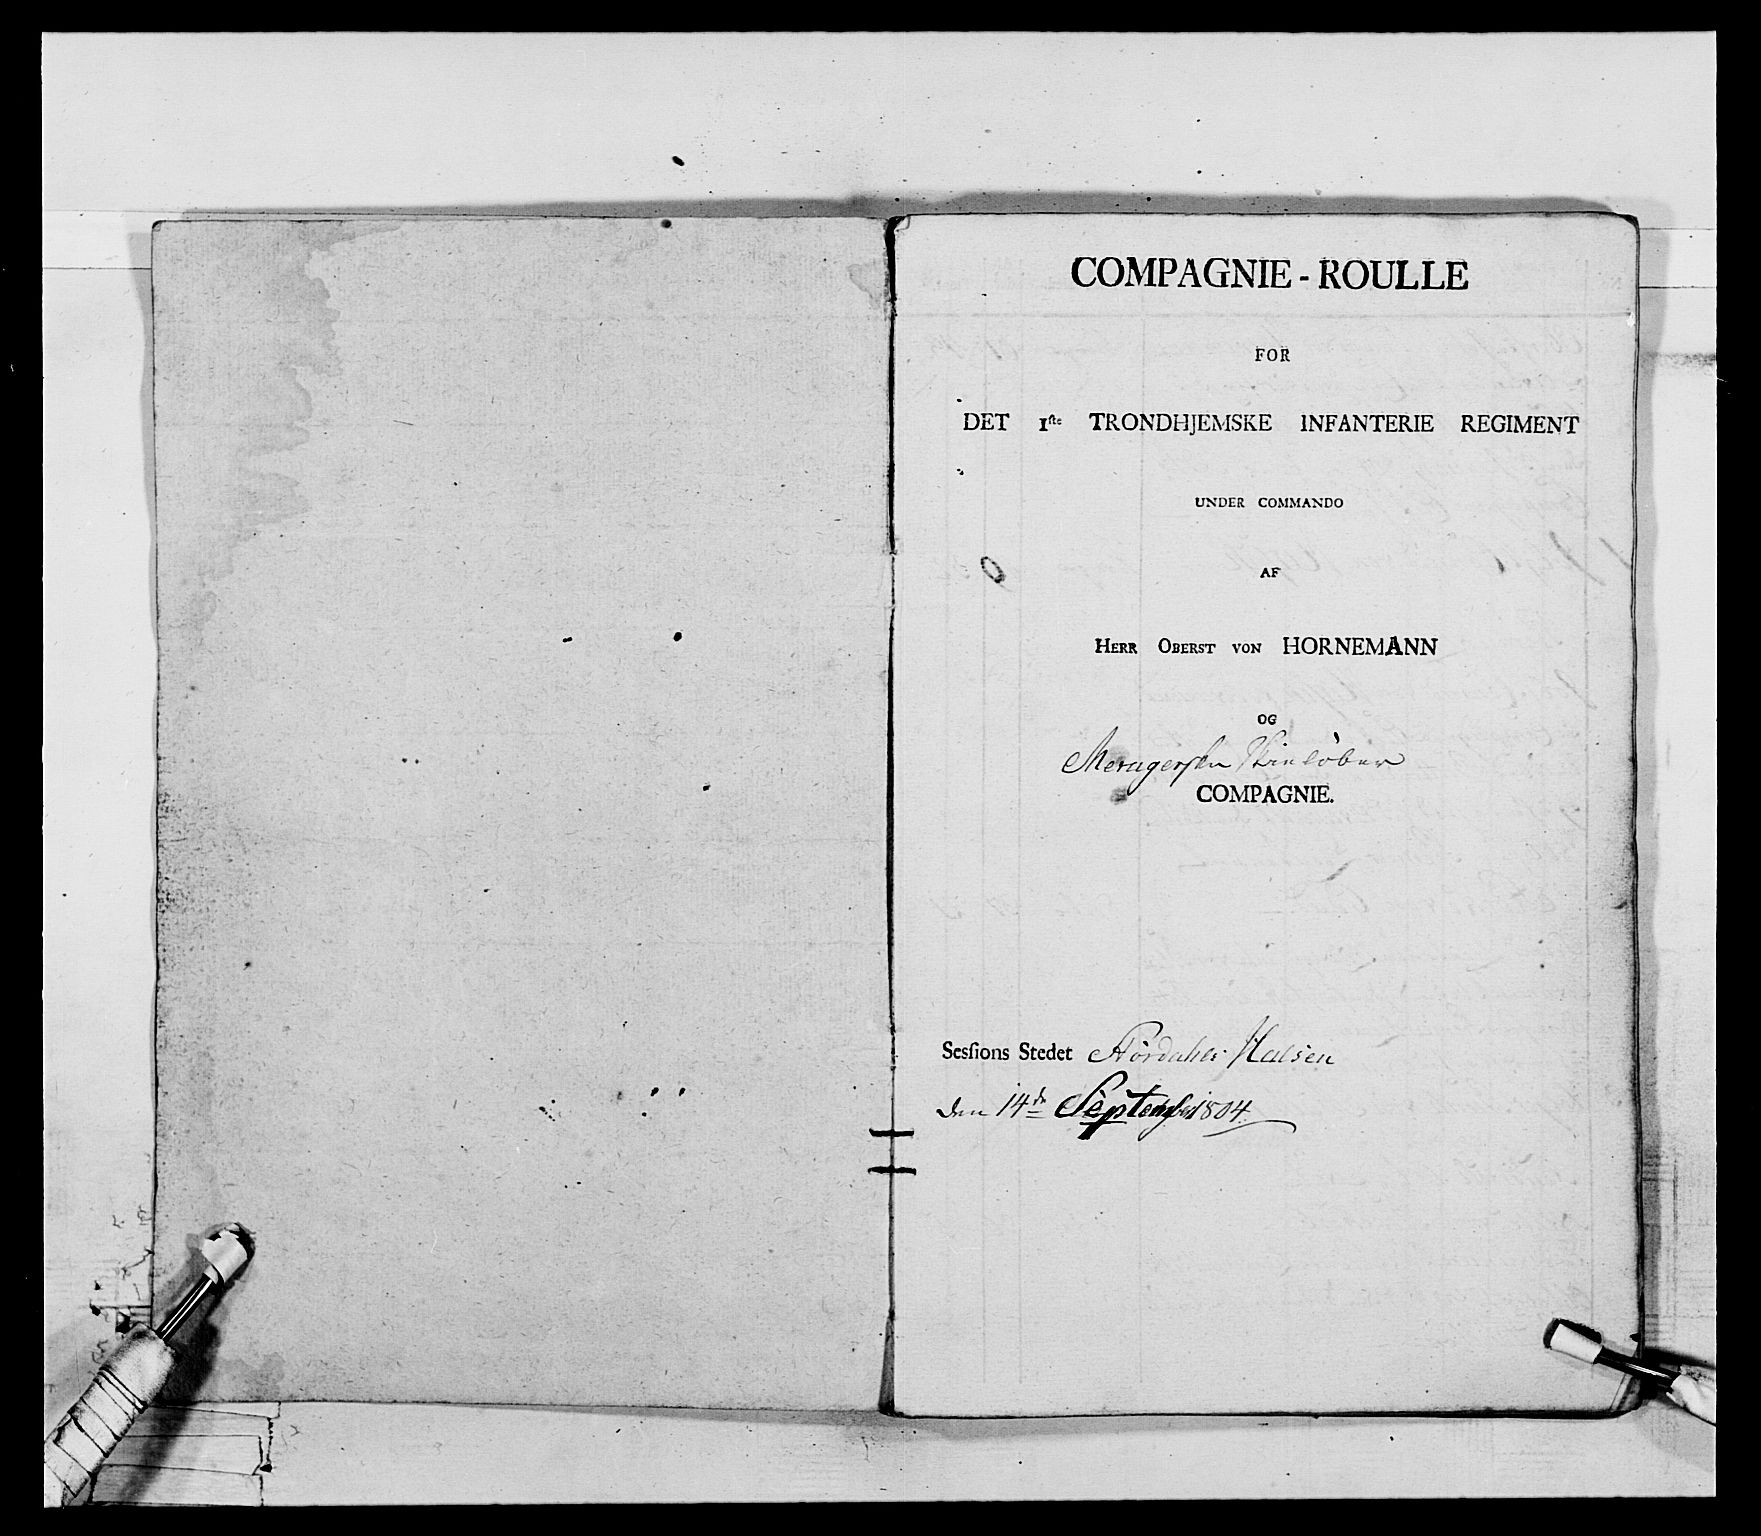 COMPAGNIE - ROULLE
FOR
DET 1ſte TRONDHJEMSKE INFANTERIE REGIMENT
UNDER COMMANDO
AF
HERR OBERST VON HORNEMANN
OG
Meragerske Skieløber
COMPAGNIE.
Sesſions Stedet Størdahls Halsen
den 14de September 1804